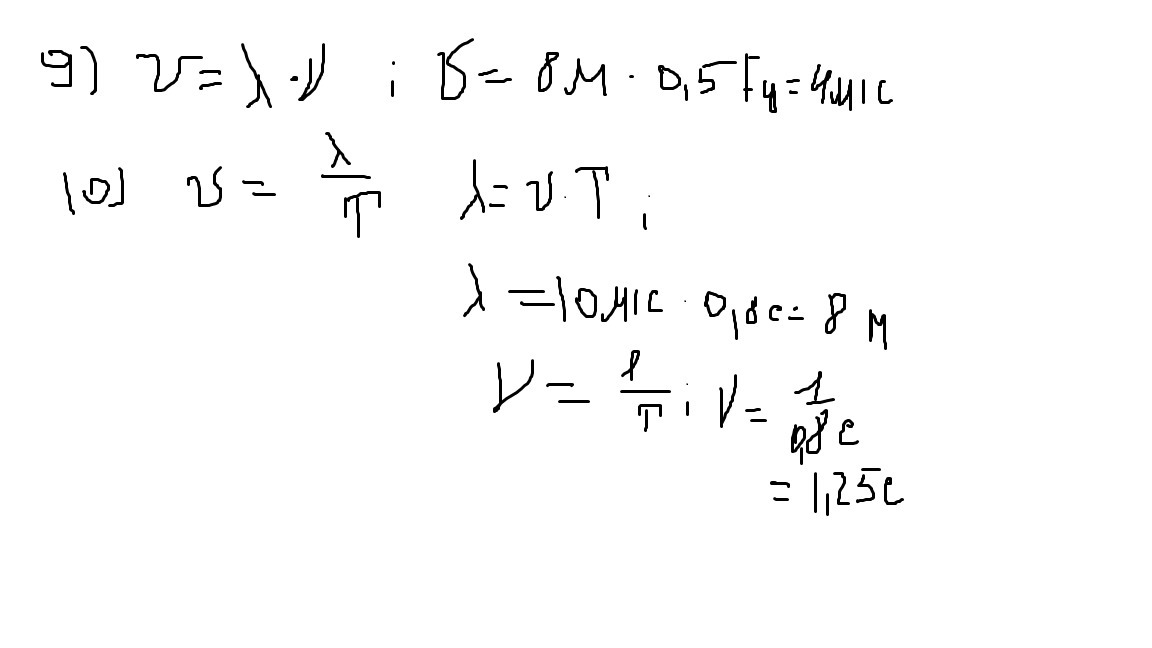 9) υ = λ · ν ; υ = 8 м · 0,5 Гц = 4 м/с
10) υ = λ/T λ = υ · T ;
λ = 10 м/с · 0,8 с = 8 м
ν = 1/T ; ν = 1/0,8 с
= 1,25 с